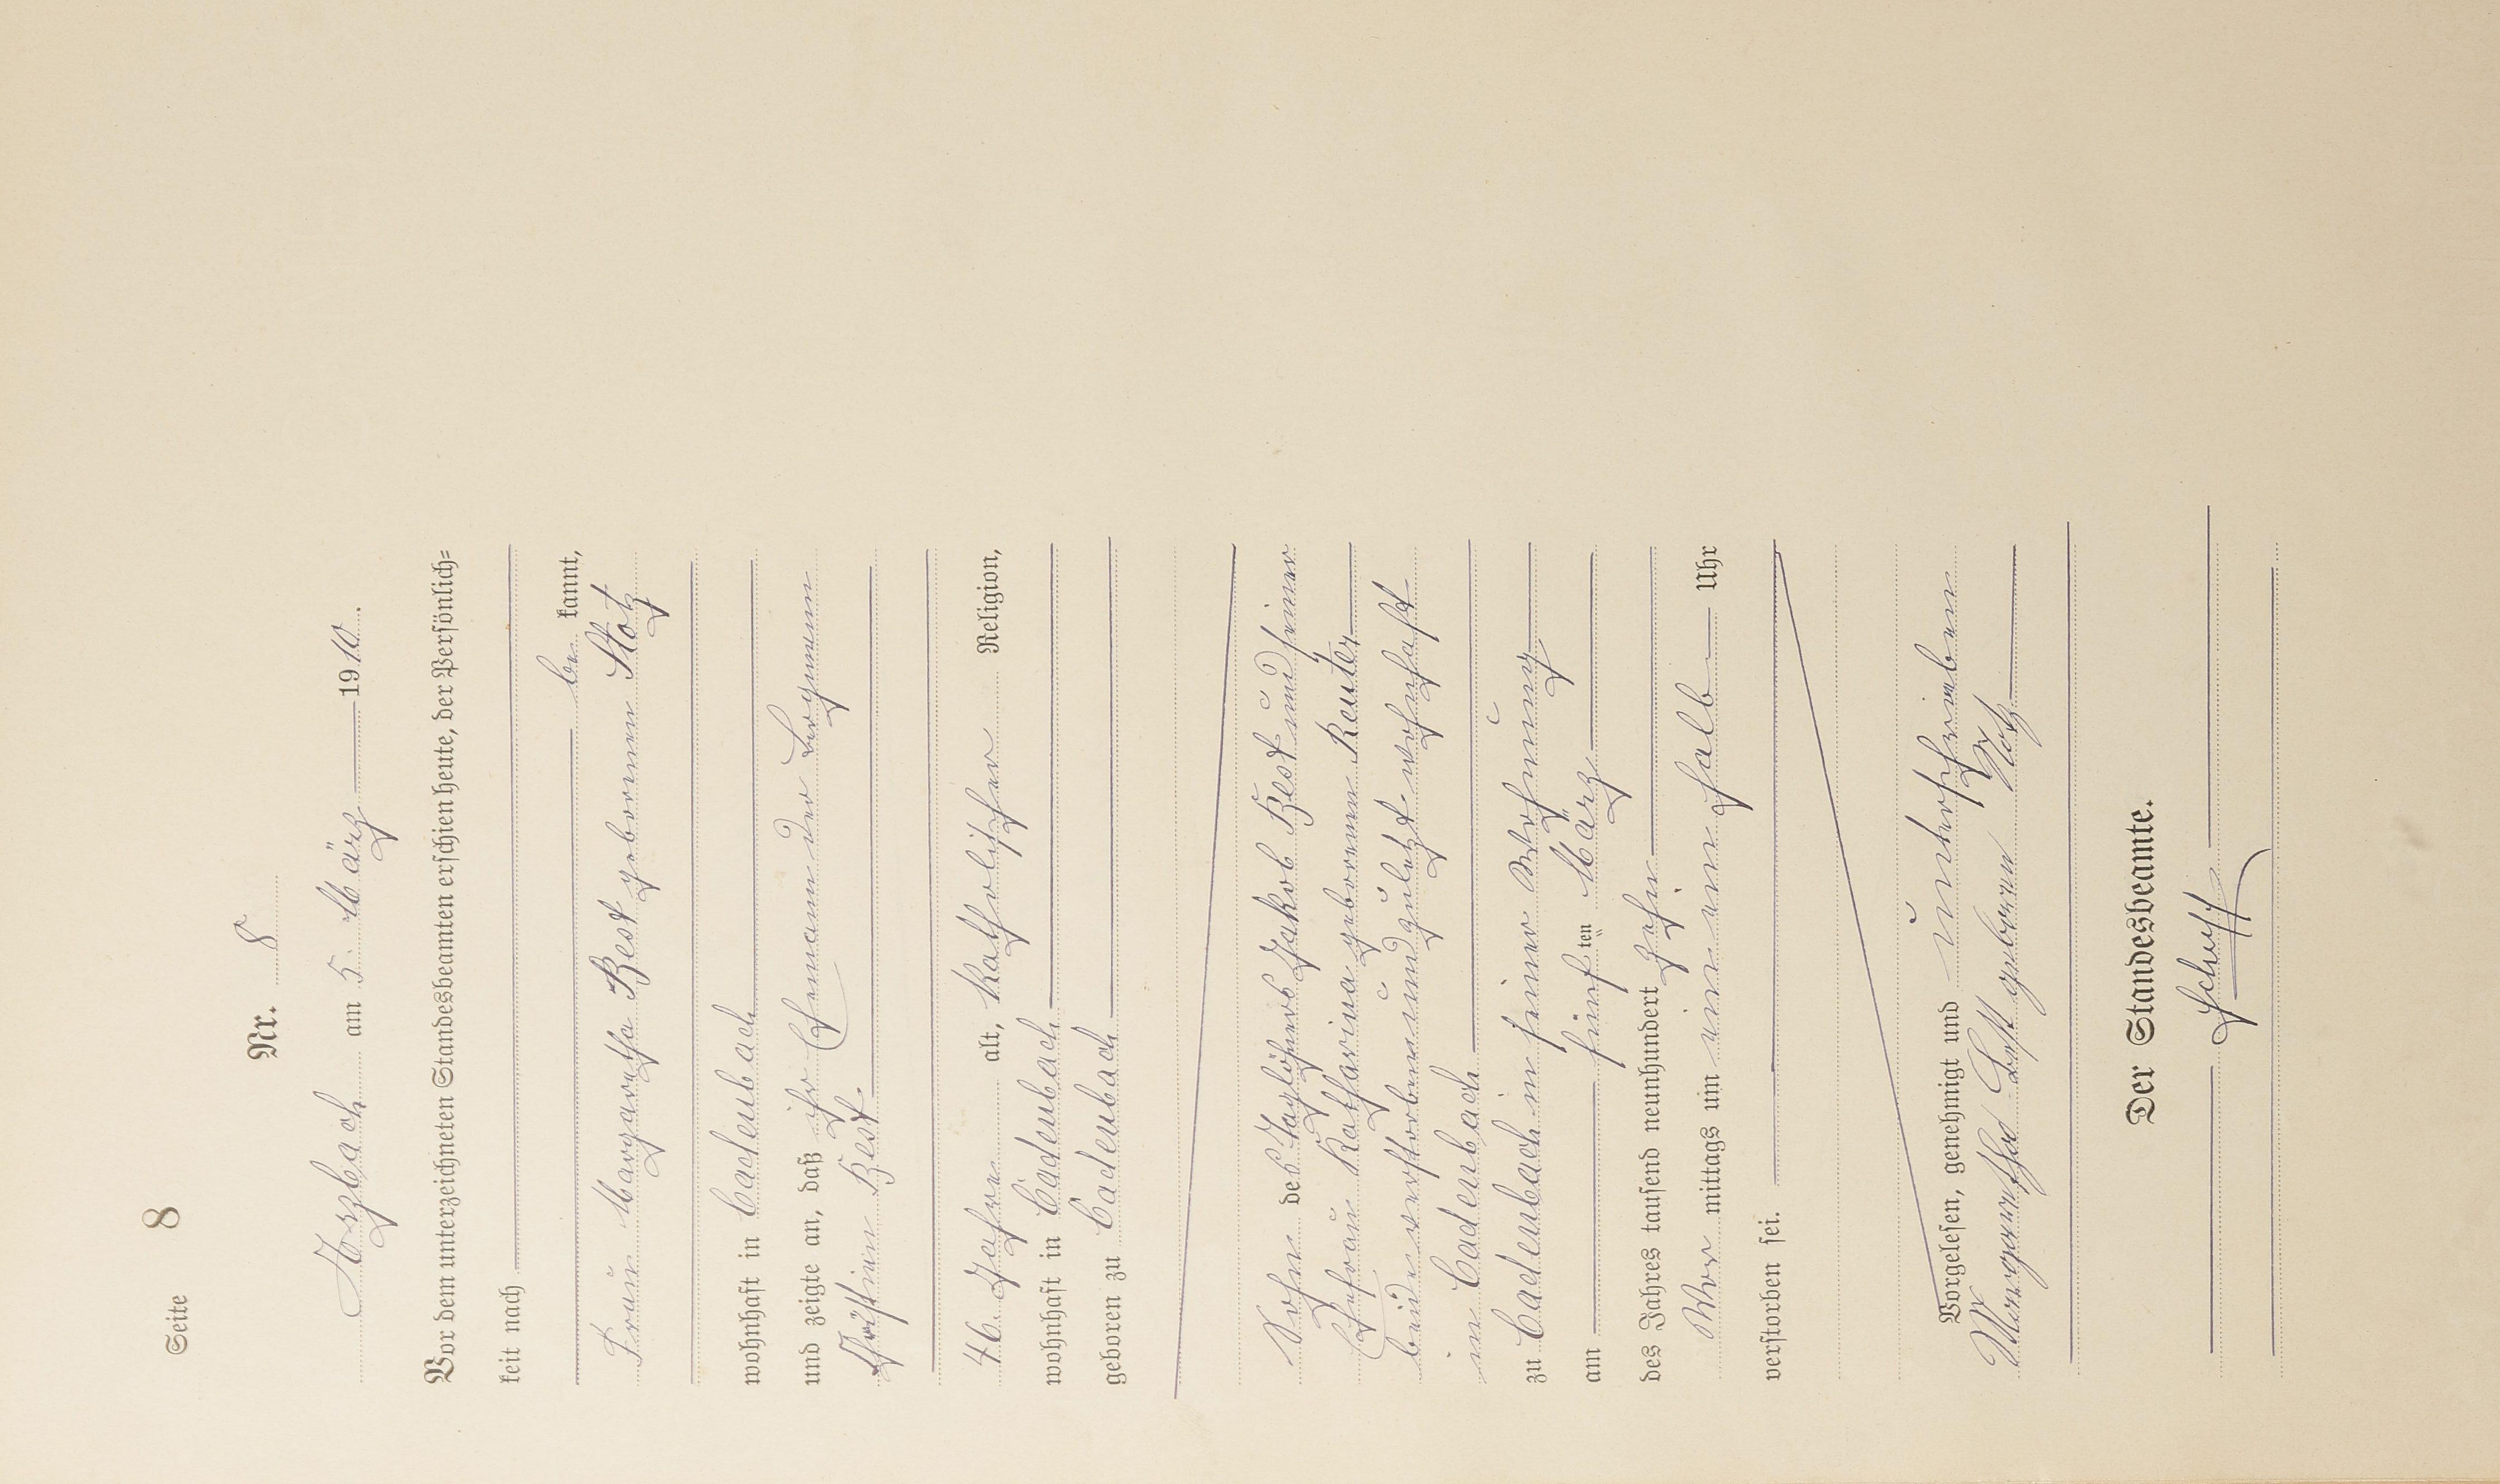 Seite 8
Nr. 8
Arzbach am 5. März 1910.
Vor dem unterzeichneten Standesbeamten erschien heute, der Persönlich=
keit nach
be kannt,
Frau Margaretha Best geborenen Stotz
wohnhaft in Cadenbach
und zeigte an, daß ihr Ehemann der Bergmann
Best.
46 Jahre alt, katholischer Religion,
wohnhaft in Cadenbach
geboren zu Cadenbach
Sohn des Taglöhners Jakob Best und seiner
Ehefrau Katharina geborenen Reuter,
beide verstorben und zuletzt wohnhaft
in Cadenbach
zu Cadenbach in seiner Wohnung
am fünf ten März
des Jahres tausend neunhundert zehn
Vor mittags um ein ein halb Uhr
verstorben sei.
Vorgelesen, genehmigt und unterschrieben
Margaretha Best geborene Stotz
Der Standesbeamte.